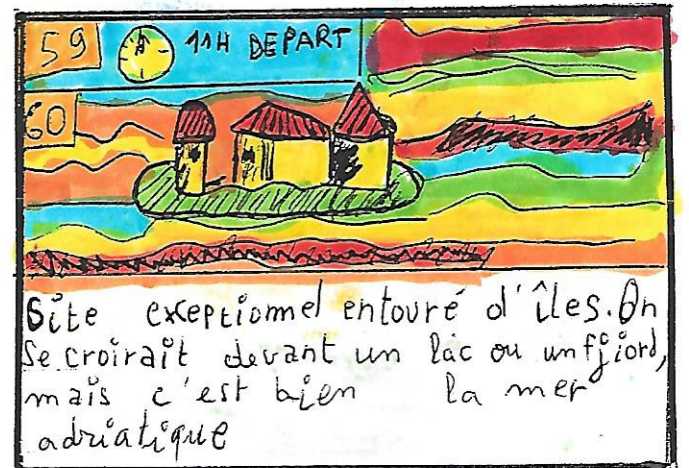 59 11H DEPART
60
Site exceptionnel entouré d'îles. On
se croirait devant un lac ou un fjord,
mais c'est bien la mer
adriatique